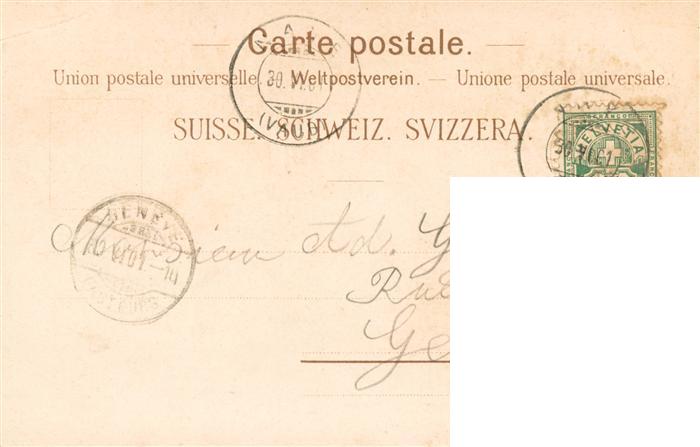 Carte postale.
Union postale universelle. — Weltpostverein. — Unione postale universale.
SUISSE. SCHWEIZ. SVIZZERA.
30. VI.01
(VAUD)
HELVETIA
FRANCO
GENÈVE
VI.01.–10
Monsieur Ad. G
Rue
Ge